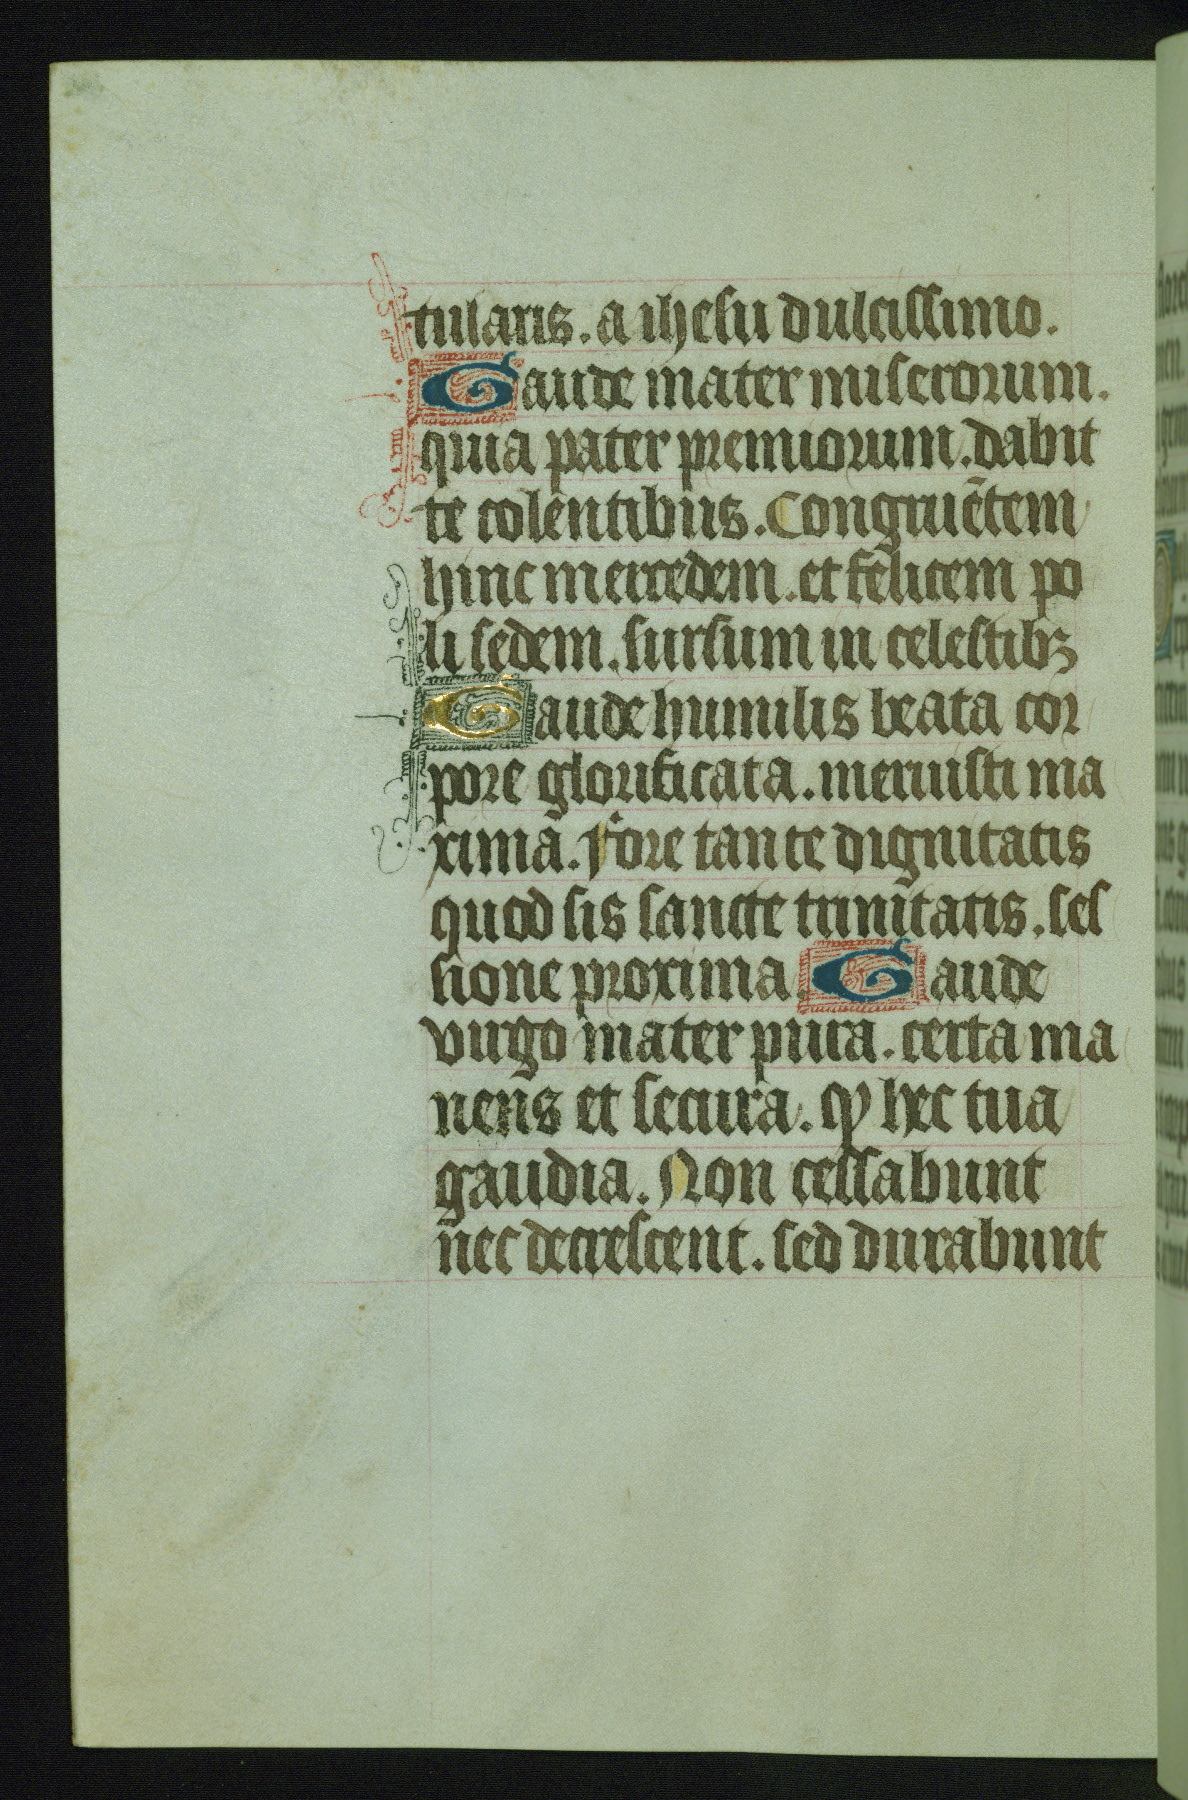 tularis. a ihesu dulcissimo.
Gaude mater miserorum.
quia pater premiorum. dabit
te colentibus. Congruētem
hinc mercedem. et felicem po
li sedem. sursum in celestibꝫ
Gaude humilis beata cor
pore glorificata. meruisti ma
xima. Fore tante dignitatis
quod sis sancte trinitatis. ses
sione proxima. Gaude
virgo mater pura. certa ma
nens et secura. ꝙ hec tua
gaudia. Non cessabunt
nec decrescent. sed durabunt